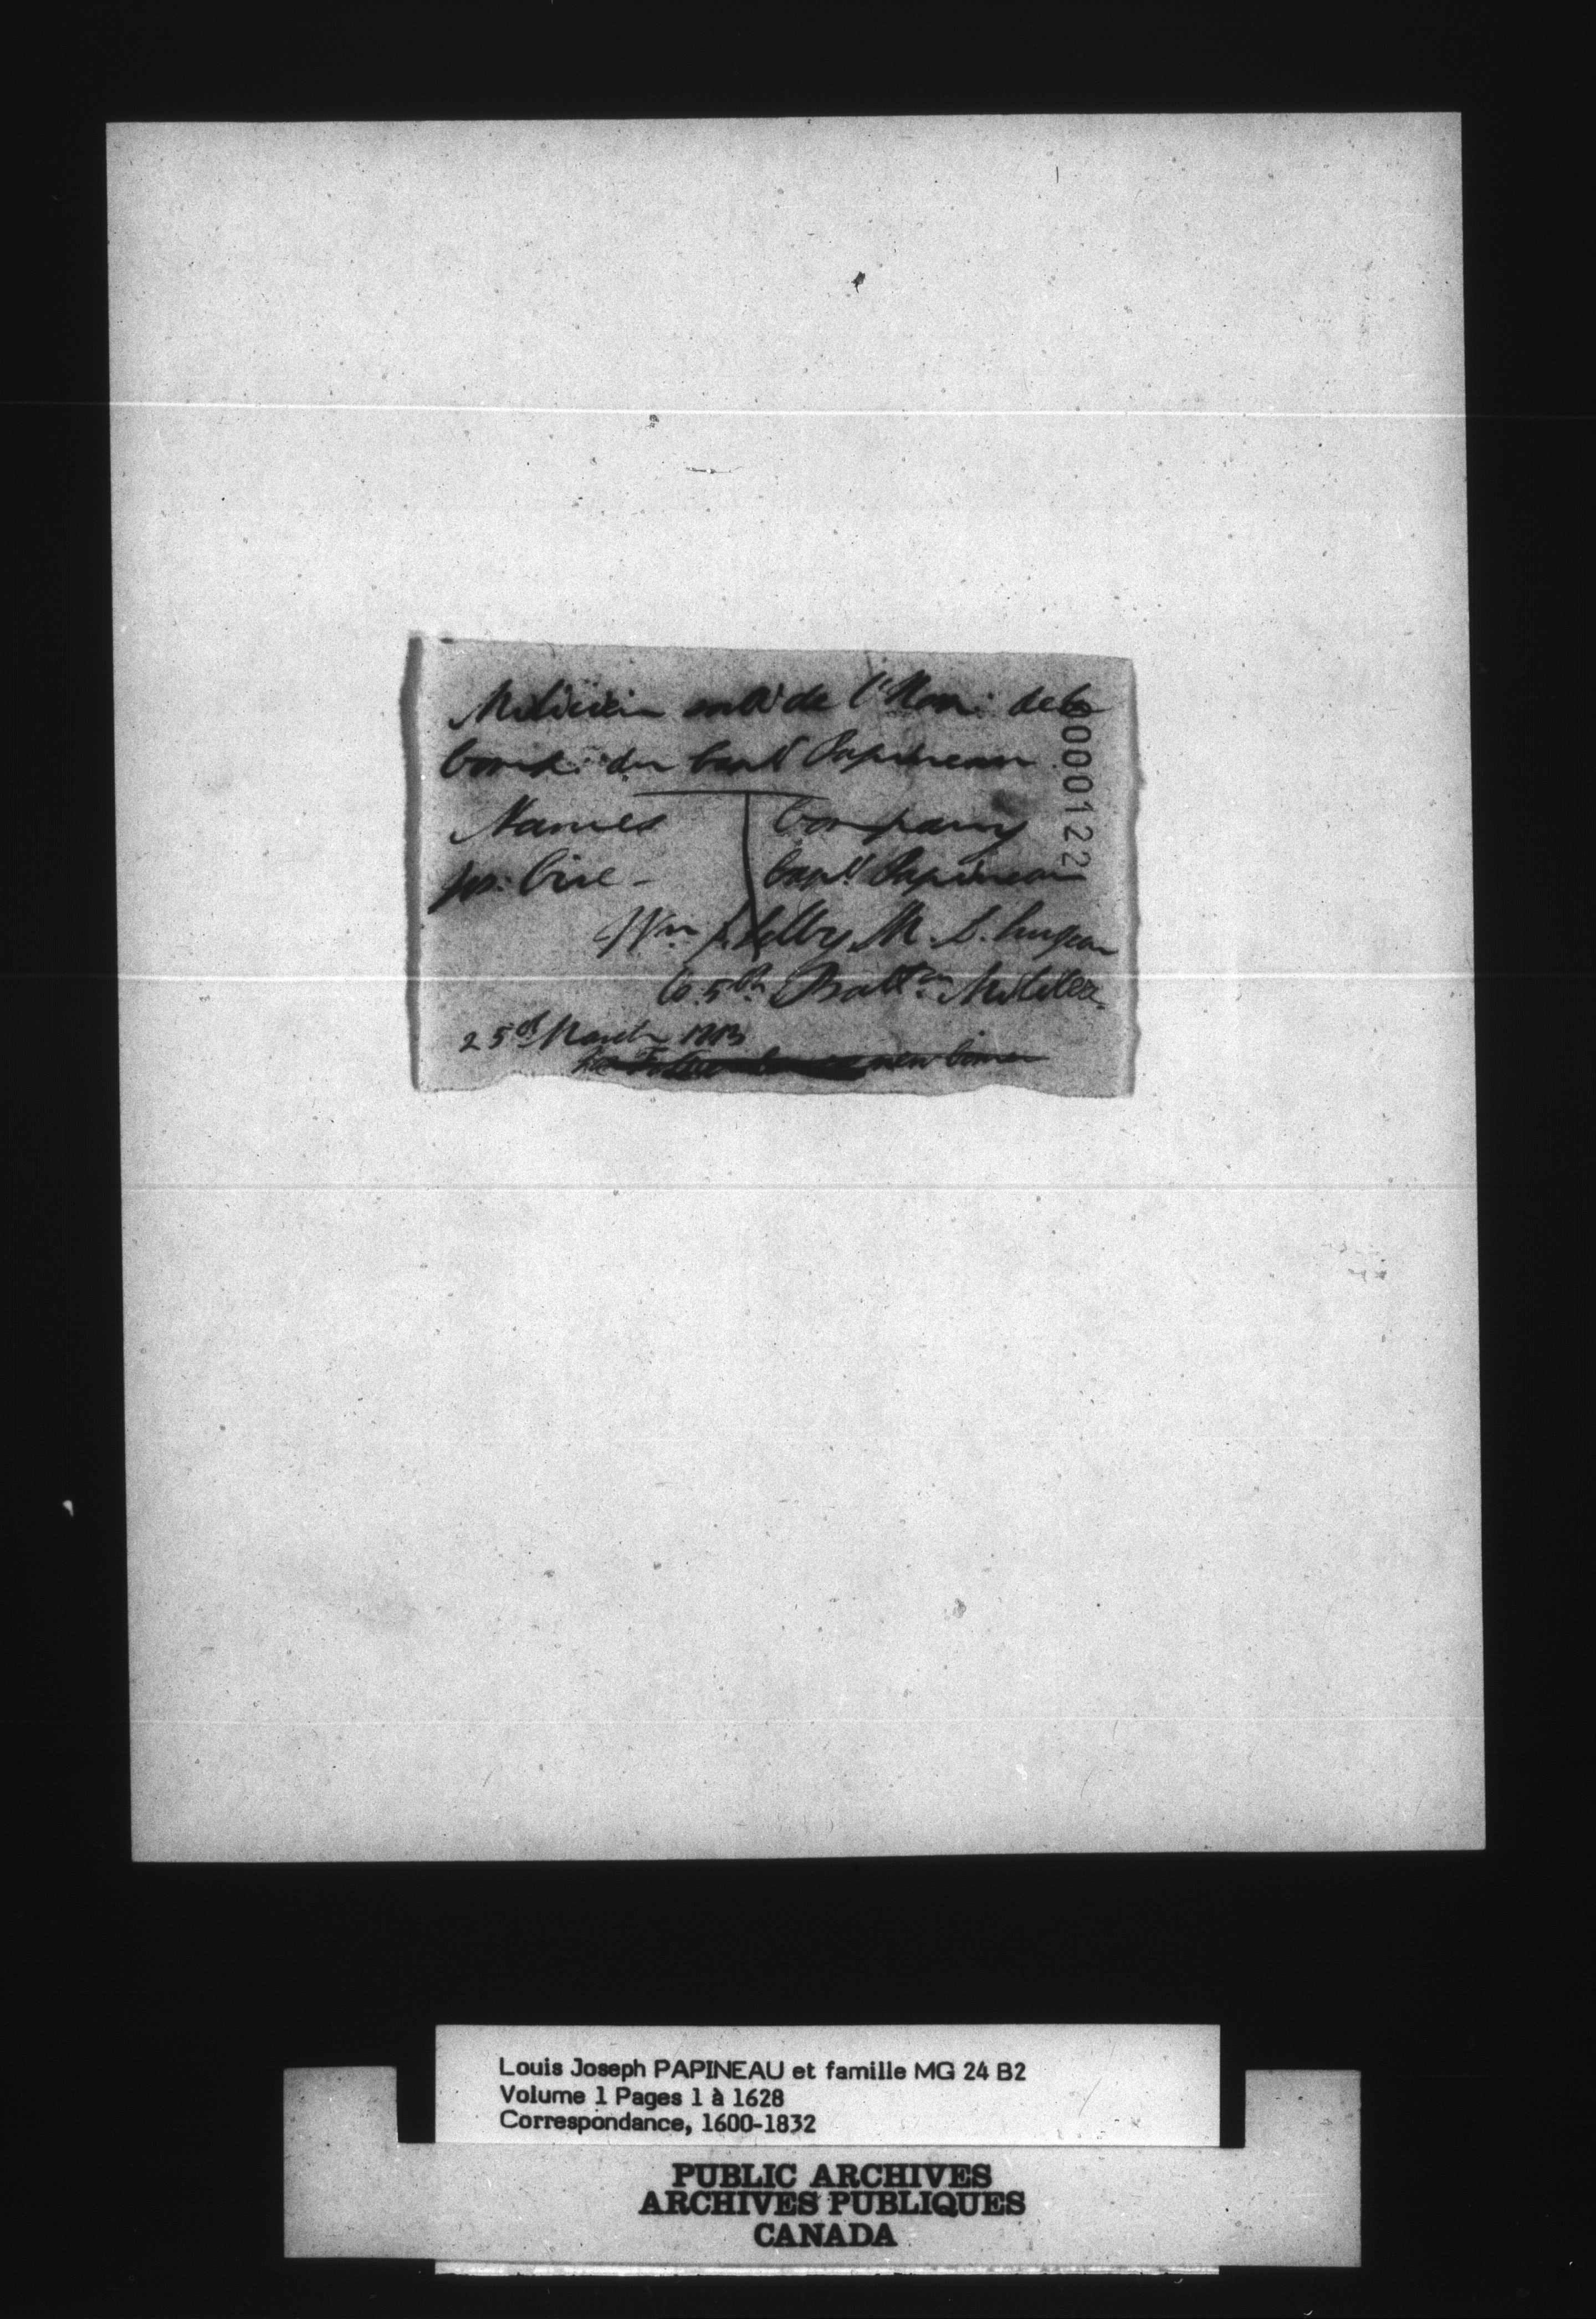 Milicien sorti de l'Hop: de la
Comp: du Capt Papineau
Names Company
jos: Cire - Capt. Papineau
Wm Selby M. D. Surgeon
to 5th Battn Militia
25th March 1813
0000122
Louis Joseph PAPINEAU et famille MG 24 B2
Volume 1 Pages 1 à 1628
Correspondance, 1600-1832
PUBLIC ARCHIVES
ARCHIVES PUBLIQUES
CANADA